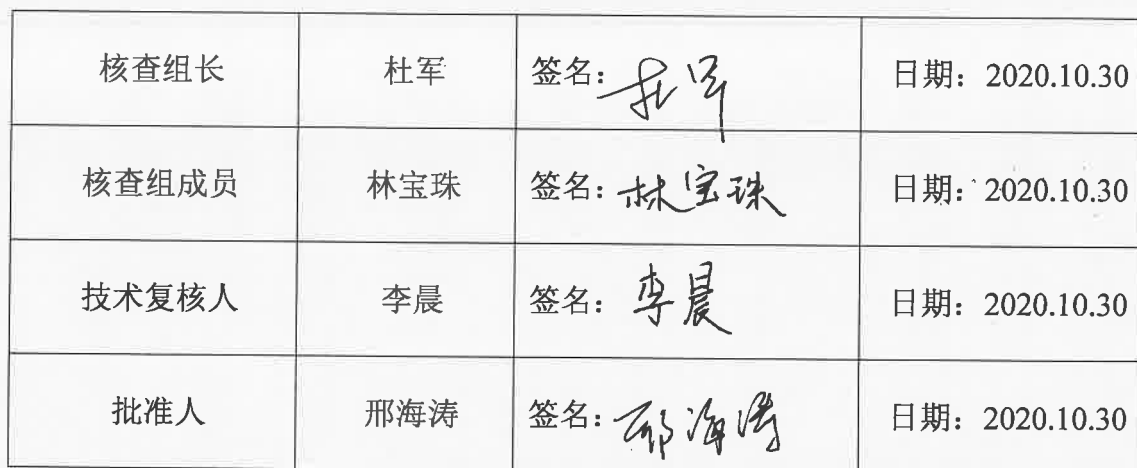 核查组长 杜军 签名：杜军 日期：2020.10.30
核查组成员 林宝珠 签名：林宝珠 日期：2020.10.30
技术复核人 李晨 签名：李晨 日期：2020.10.30
批准人 邢海涛 签名：邢海涛 日期：2020.10.30